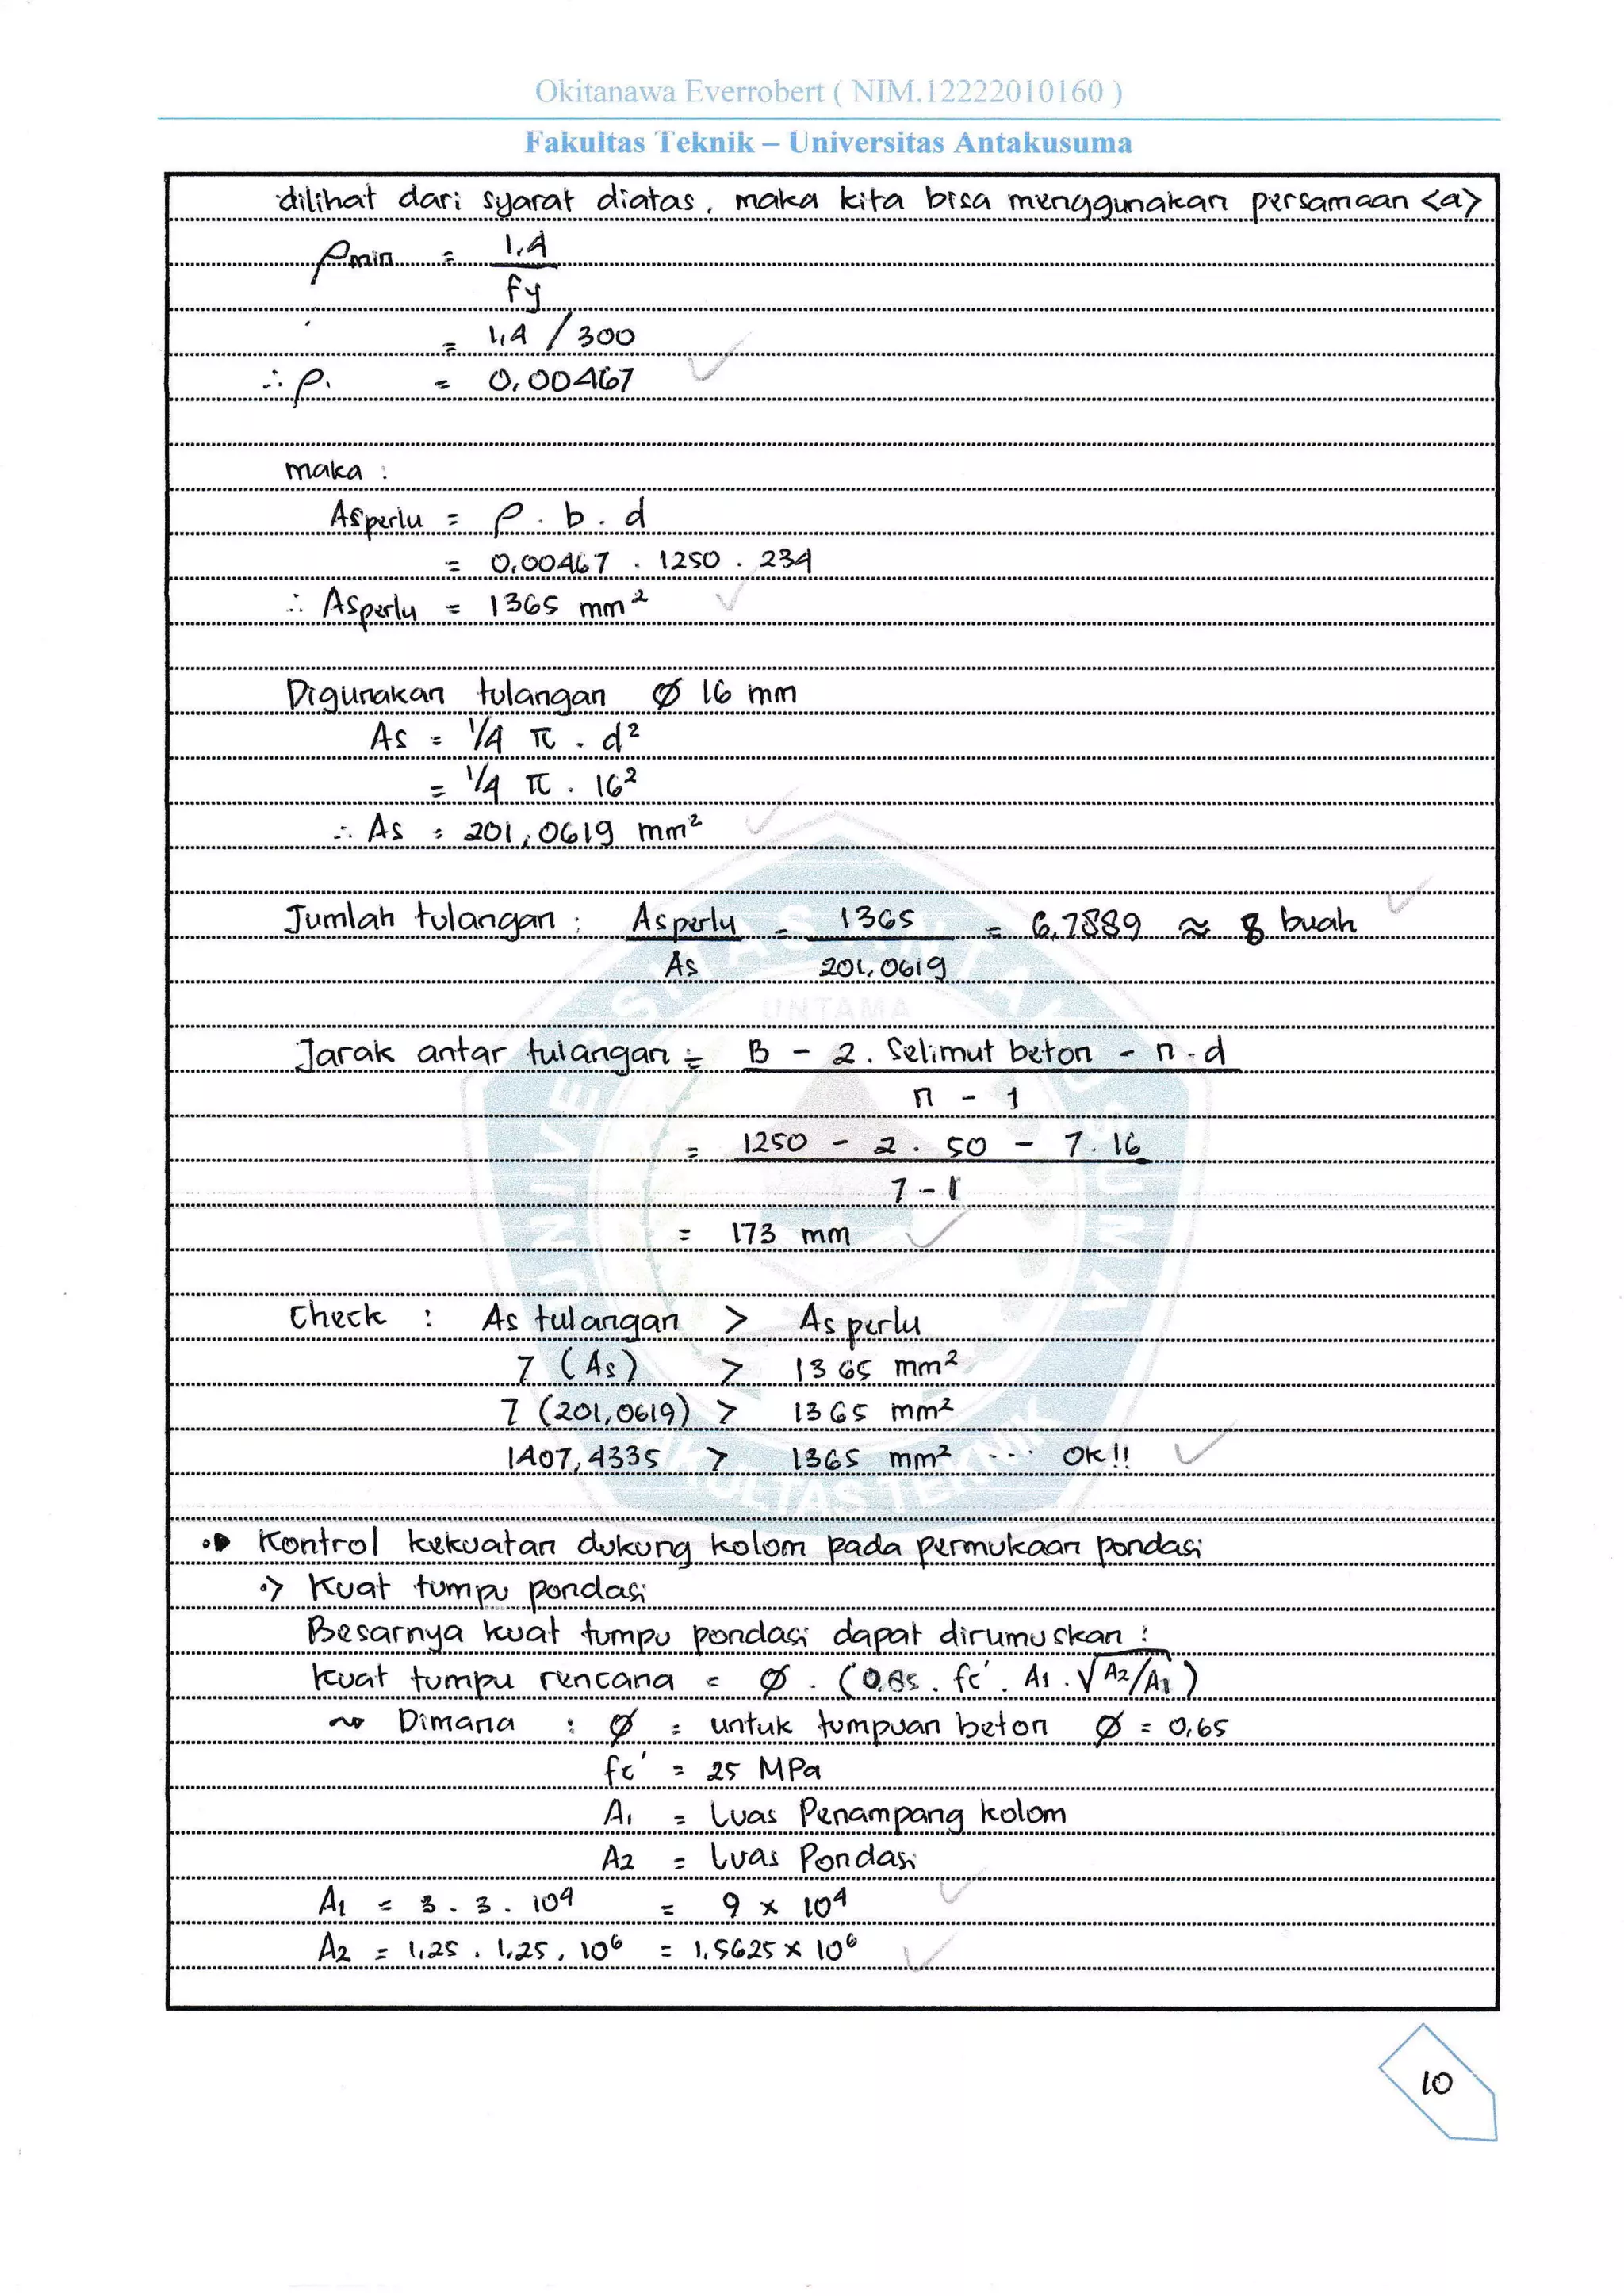 Okitanawa Everrobert ( NIM.12222010160 )
Fakultas Teknik – Universitas Antakusuma
dilihat dari syarat diatas, maka kita bisa menggunakan persamaan <a>
ρmin = 1,4
fy
= 1,4 / 300
∴ ρ. = 0,00467
maka :
Asperlu = ρ . b . d
= 0,00467 . 1250 . 234
∴ Asperlu = 1365 mm²
Digunakan tulangan Ø 16 mm
As = 1/4 π . d²
= 1/4 π . 16²
∴ As = 201,0619 mm²
Jumlah tulangan : As perlu = 1365 = 6,7889 ≈ 8 buah
As 201,0619
UNTAMA
Jarak antar tulangan = B - 2 . Selimut beton - n . d
n - 1
= 1250 - 2 . 50 - 7 . 16
7 - 1
= 173 mm
Check : As tulangan > As perlu
7 (As) > 1365 mm²
7 (201,0619) > 1365 mm²
1407,4335 > 1365 mm² .... OK!!
UNIVERSITAS ANTAKUSUMA
FAKULTAS TEKNIK
Kontrol kekuatan dukung kolom pada permukaan pondasi
Kuat tumpu pondasi
Besarnya kuat tumpu pondasi dapat dirumuskan :
kuat tumpu rencana = Ø . (0,85 . fc' . A1 . √A2/A1 )
Dimana : Ø = untuk tumpuan beton Ø = 0,65
fc' = 25 MPa
A1 = Luas Penampang kolom
A2 = Luas Pondasi
A1 = 3 . 3 . 10⁴ = 9 x 10⁴
A2 = 1,25 . 1,25 . 10⁶ = 1,5625 x 10⁶
10